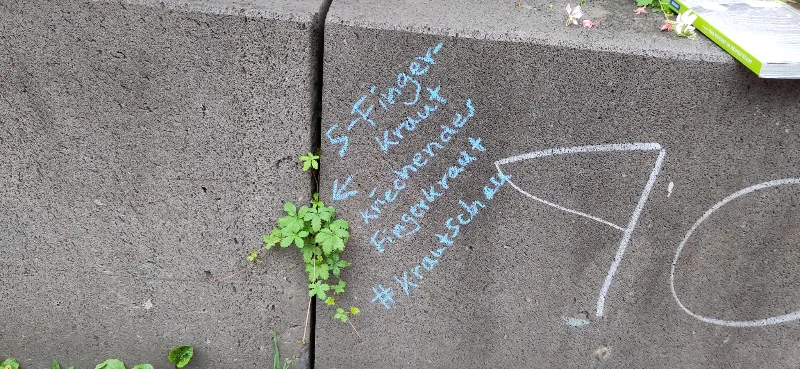 5-Finger-
Kraut
kriechendes
Fingerkraut
#Krautschau